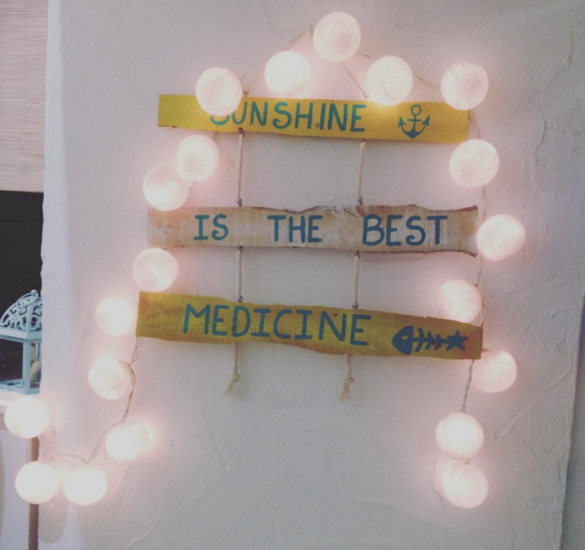 SUNSHINE
IS THE BEST
MEDICINE